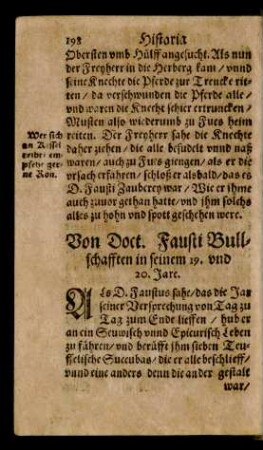 198 Historia
Obersten vmb Hülff angesucht. Als nun
der Freyherr in die Herberg kam / vnnd
seine Knechte die Pferde zur Trencke rit-
ten / da verschwunden die Pferde alle /
vnd waren die Knecht schier ertruncken /
Musten also wiederumb zu Fues heim
reiten. Der Freyherr sahe die Knechte
daher ziehen / die alle besudelt vnnd naß
waren / auch zu Fues giengen / als er die
vrsach erfahren / schloß er alsbald / das es
D. Fausti Zauberey war / Wie er ihme
auch zuuor gethan hatte / vnd ihm solchs
alles zu hohn vnd spott geschehen were.
Wer sich
an Kessel
reibt / em-
pfehe ger-
ne Ron.
Von Doct. Fausti Bull-
schafften in seinem 19. vnd
20. Jare.
Als D. Faustus sahe / das die Jar
seiner Versprechung von Tag zu
Tag zum Ende lieffen / hub er
an ein Seuwisch vnnd Epicurisch Leben
zu führen / vnd berüfft ihm sieben Teuf-
felische Succubas / die er alle beschlieff /
vnnd eine anders denn die ander gestalt
war /